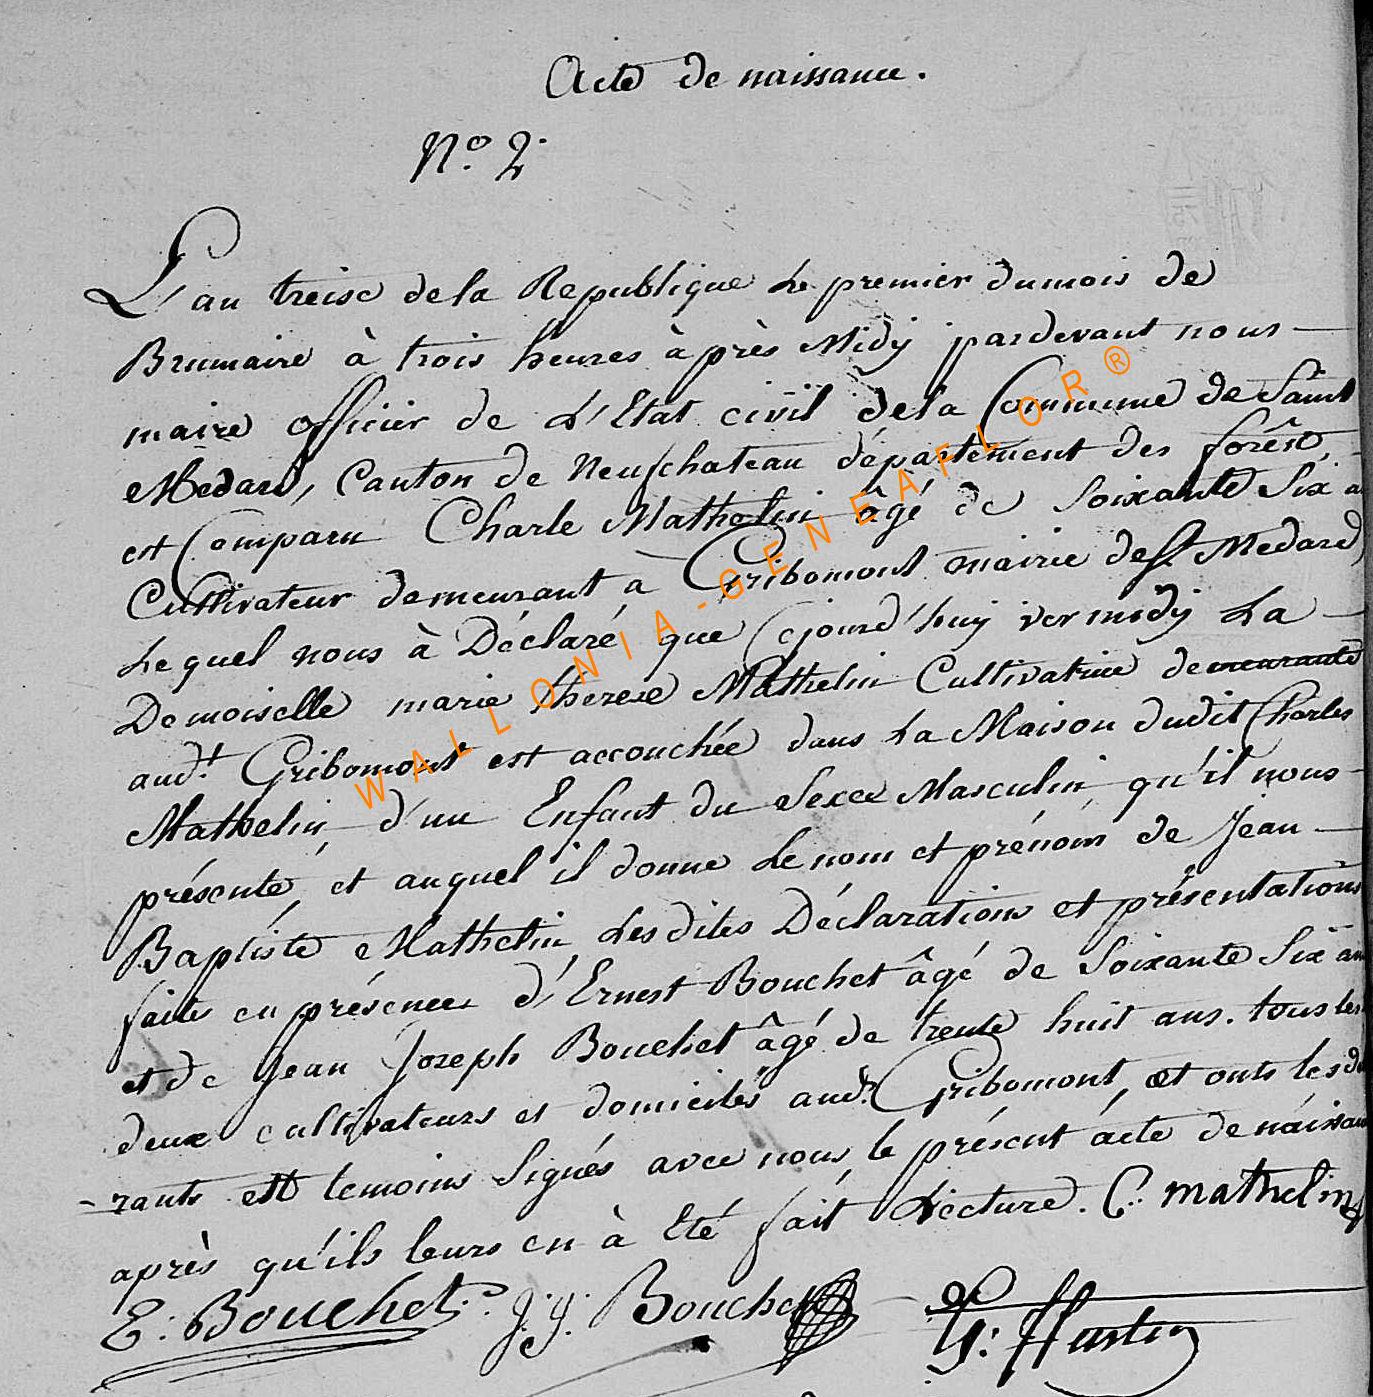 Acte de naissance.
N.o 2.
L'an treise de la Republique Le premier du mois de
Brumaire à trois heures à près Midy pardevant nous
maire officier de L'Etat civil de la Commune de Saint
Medard, Canton de Neufchateau département des forêst,
est Comparu Charle Mathelin âgé de Soixante Six a
Cultivateur demeurant a Gribomont mairie de St Medard
Lequel nous à Déclaré que Cejourd'huy ver midy La
Demoiselle marie therese Mathelin Cultivatrice demeurante
aud.t Gribomont est accouchée dans La Maison dudit Charles
Mathelin, d'un Enfant du Sexce Masculin qu'il nous
présente, et auquel il donne Le nom et prénom de Jean
Baptiste Mathelin, Lesdites Déclarations et présentations
faites en présences d'Ernest Bouchet âgé de Soixante Six an
et de Jean Joseph Bouchet âgé de trente huit ans. tous les
deux cultivateurs et domiciles aud.t Gribomont, et onts les d
-rants et temoins Signés avec nous, le présent ácte de náissan
après qu'ils leurs en à Eté fait Lecture. C: mathelin
E: Bouchet. J: J: Bouchet
G: Hustin
WALLONIA-GENEAFLOR®